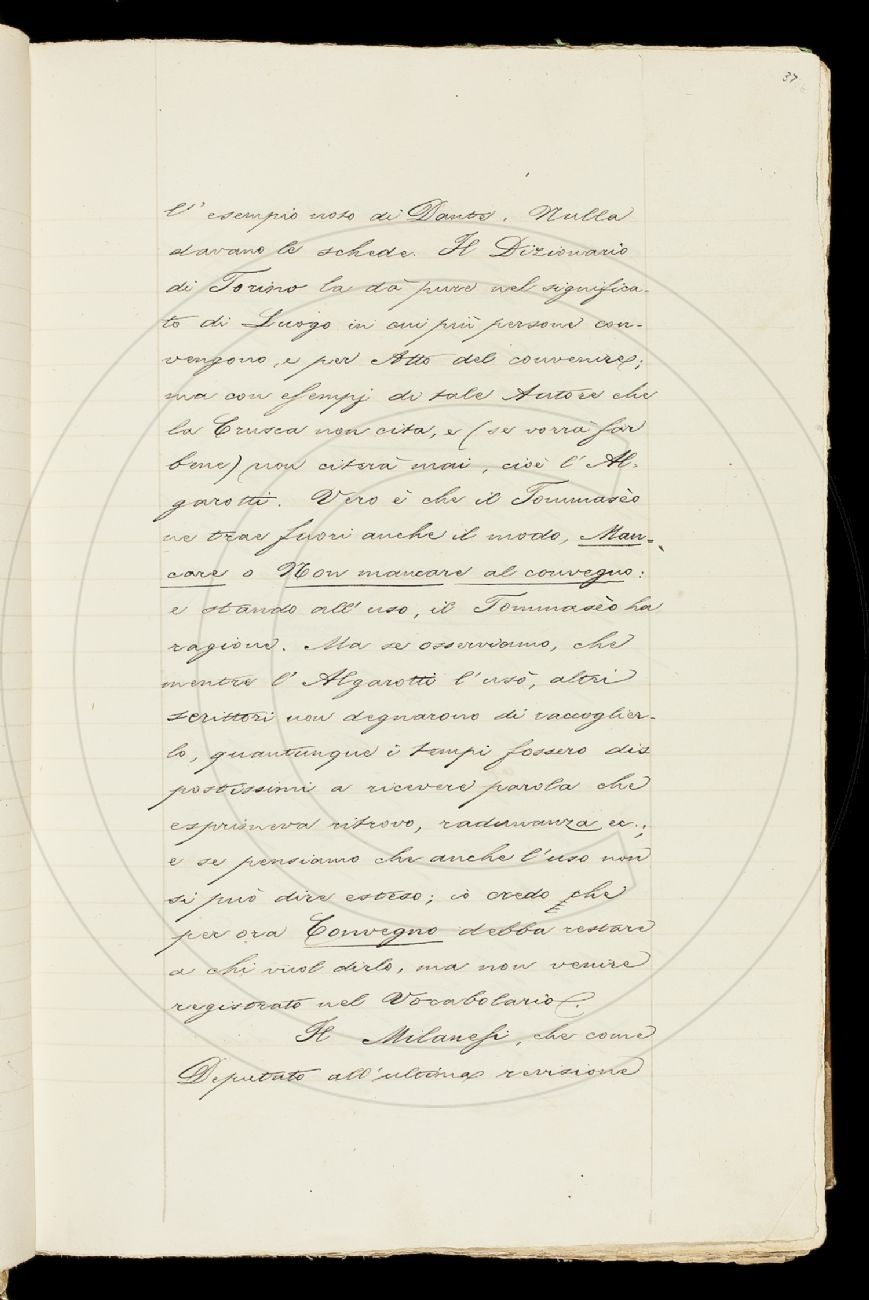 37
l'esempio noto di Dante. Nulla
davano le schede. Il Dizionario
di Torino la dà pure nel significa-
to di Luogo in cui più persone con-
vengono, e per Atto del convenire;
ma con esempj di tale Autore che
la Crusca non cita, e (se vorrà far
bene) non citerà mai, cioè l'Al-
garotti. Vero è che il Tommasèo
ne trae fuori anche il modo, Man-
care o Non mancare al convegno:
e stando all'uso, il Tommasèo ha
ragione. Ma se osserviamo, che
mentre l'Algarotti l'usò, altri
scrittori non degnarono di raccoglier-
lo, quantunque i tempi fossero dis
postissimi a ricevere parola che
esprimeva ritrovo, radunanza ec.;
e se pensiamo che anche l'uso non
si può dire esteso; io credo che
per ora Convegno debba restare
a chi vuol dirlo, ma non venire
registrato nel Vocabolario.
Il Milanesi, che come
Deputato all'ultima revisione